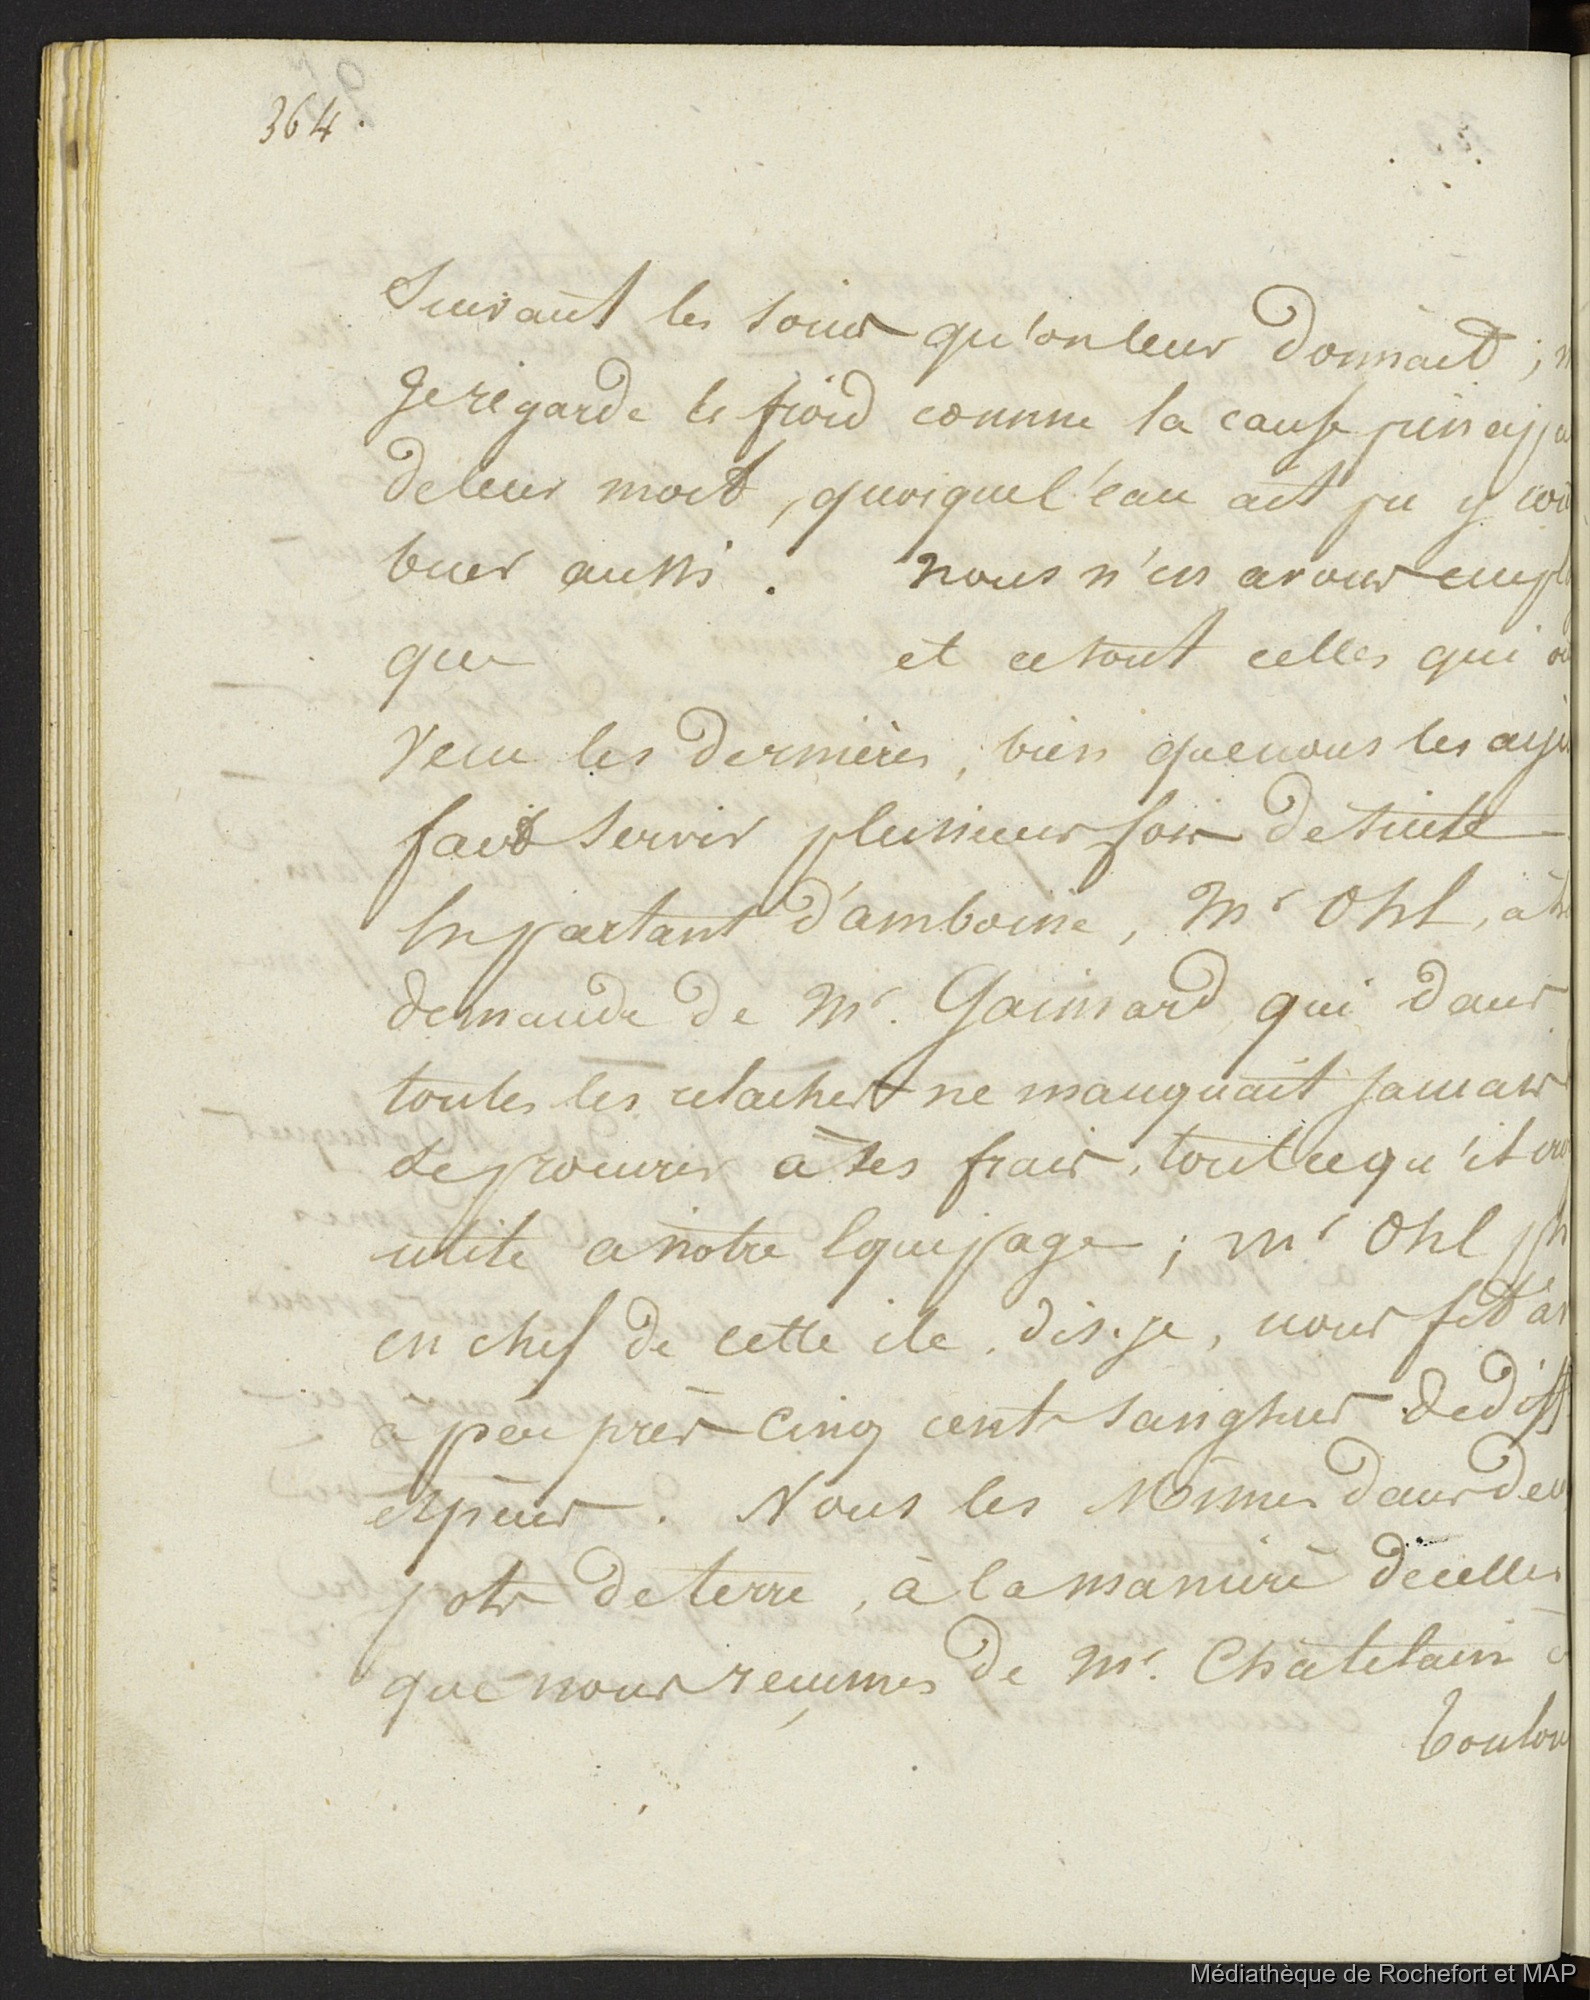 364.
Suivant les soins qu'on leur donnait ;
Je regarde le froid comme la cause
de leur mort, quoique l'eau ait pu y
buer aussi. nous n'en avons
que et ce sont celles qui
vecu les dernières, bien que nous les
fait servir plusieurs fois de suite
En partant d'amboine, Mr Ohl, à
demande de Mr. Gaimard qui dans
toutes les relaches ne manquait jamais
de procurer à ses frais, tout ce qu'il
utile a notre Equipage ; mr Ohl
en chef de cette ile, dis-je, nous fit
à peu près Cinq cents sangsues de
espèces. Nous les Mîmes dans
pots de terre, à la manière de celles
que nous reçumes de Mr. Châtelain
Médiathèque de Rochefort et MAP